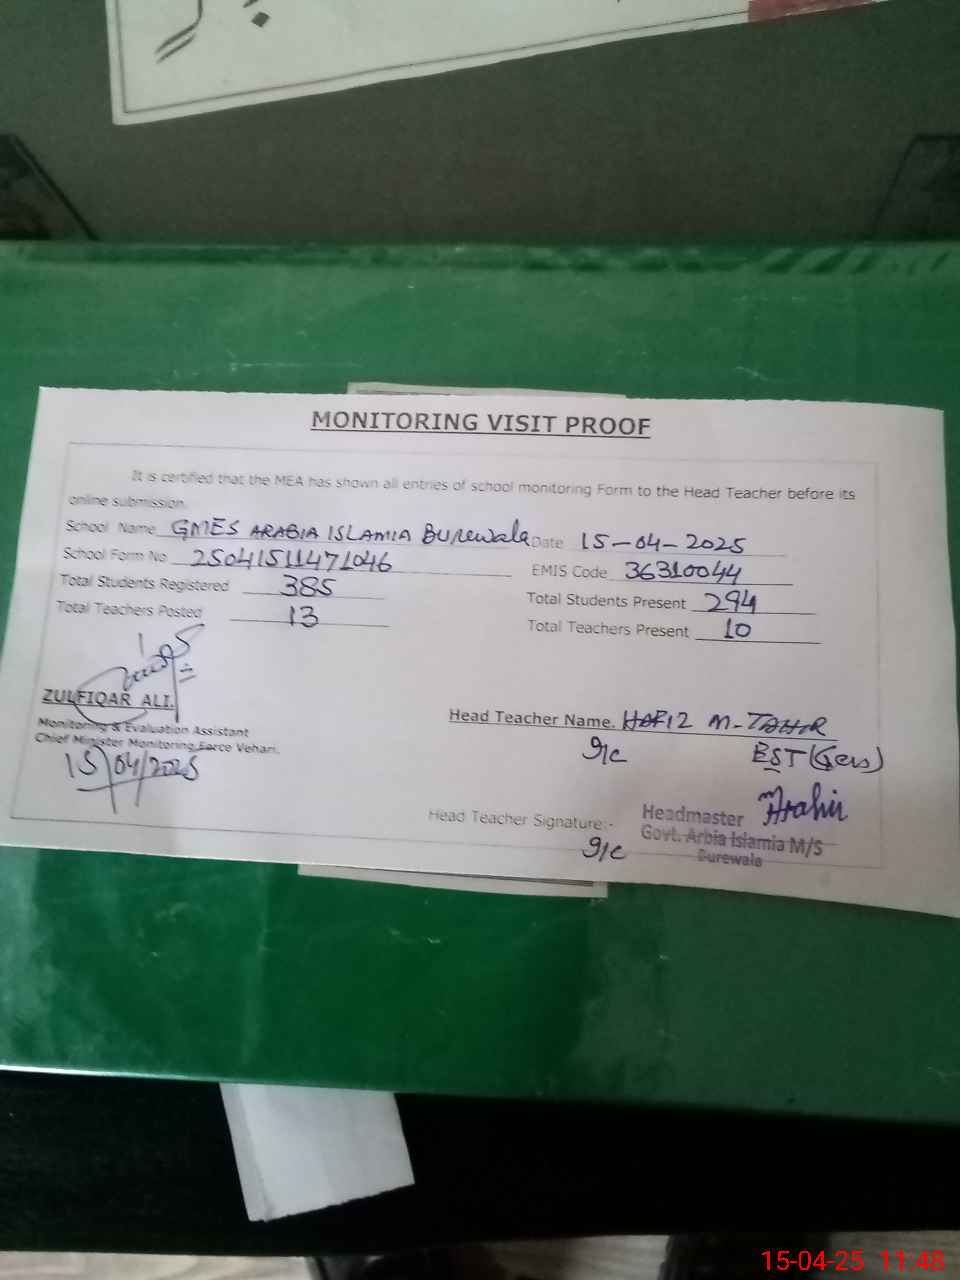 MONITORING VISIT PROOF
It is certified that the MEA has shown all entries of school monitoring Form to the Head Teacher before its
online submission.
School Name GMES ARABIA ISLAMIA Burewala Date 15-04-2025
School Form No 25041511471046 EMIS Code 36310044
Total Students Registered 385 Total Students Present 294
Total Teachers Posted 13 Total Teachers Present 10
ZULFIQAR ALI.
Monitoring & Evaluation Assistant
Chief Minister Monitoring Force Vehari.
15/04/2025
Head Teacher Name. HAFIZ M-TAHIR
I/C EST (Gen)
Head Teacher Signature:- Headmaster MTahir
Govt. Arbia Islamia M/S
I/C Burewala
15-04-25 11:48